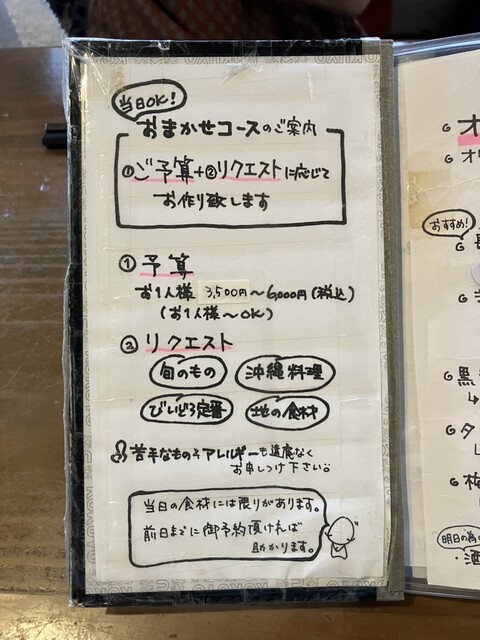 当日OK!
おまかせコースのご案内
①ご予算+②リクエストに応じて
お作り致します
① 予算
お1人様 3,500円〜6,000円(税込)
(お1人様〜OK)
② リクエスト
旬のもの
沖縄料理
びいどろ定番
地の食材
苦手なものやアレルギーも遠慮なく
お申しつけ下さい。
当日の食材には限りがあります。
前日までに御予約頂ければ
助かります。
おすすめ!
黒
タ
梅
明日の為の
・酒